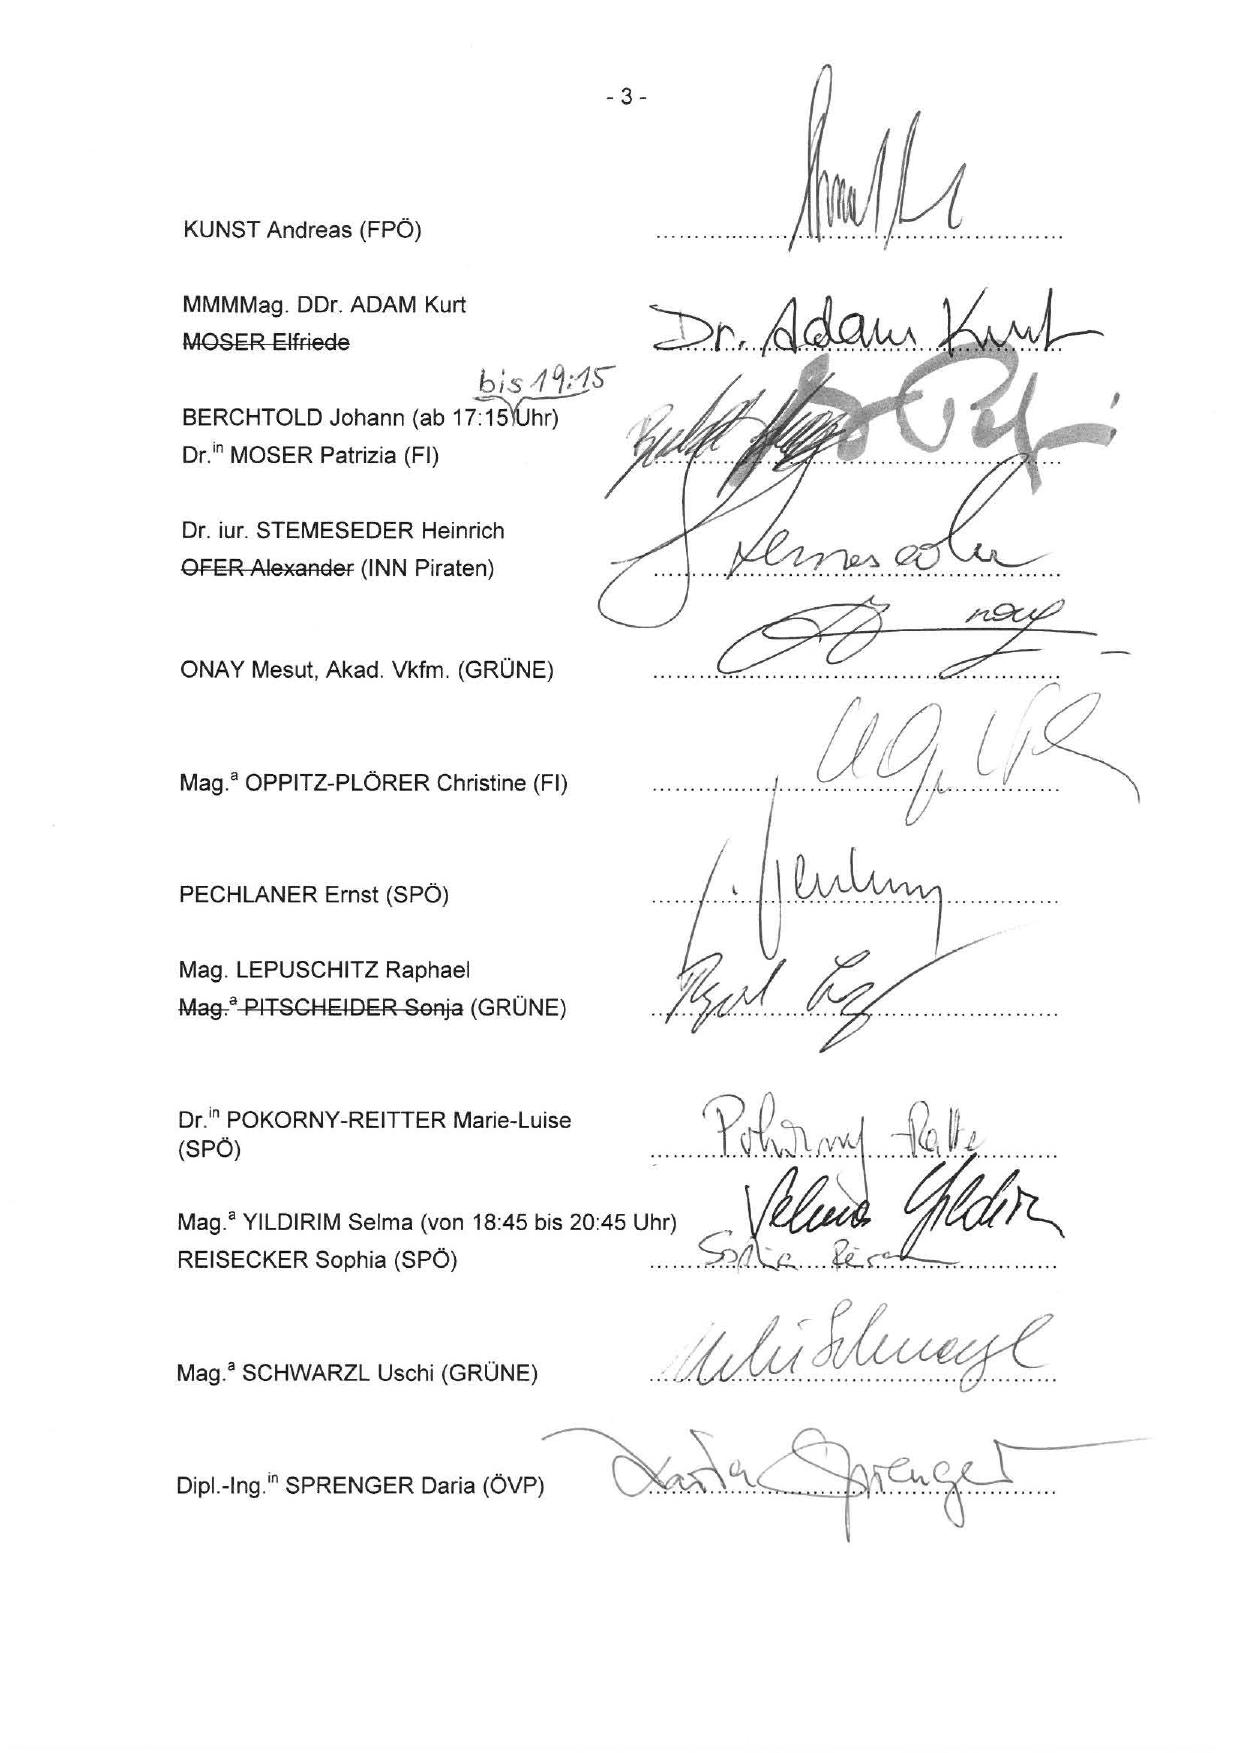 - 3 -
KUNST Andreas (FPÖ)
MMMMag. DDr. ADAM Kurt
Dr. Adam Kurt
MOSER Elfriede
bis 19:15
BERCHTOLD Johann (ab 17:15 Uhr)
Dr.in MOSER Patrizia (FI)
Dr. iur. STEMESEDER Heinrich
OFER Alexander (INN Piraten)
ONAY Mesut, Akad. Vkfm. (GRÜNE)
Mag.a OPPITZ-PLÖRER Christine (FI)
PECHLANER Ernst (SPÖ)
Mag. LEPUSCHITZ Raphael
Mag.a PITSCHEIDER Sonja (GRÜNE)
Dr.in POKORNY-REITTER Marie-Luise
(SPÖ)
Mag.a YILDIRIM Selma (von 18:45 bis 20:45 Uhr) Selma Yildirim
REISECKER Sophia (SPÖ)
Mag.a SCHWARZL Uschi (GRÜNE)
Dipl.-Ing.in SPRENGER Daria (ÖVP) Daria Sprenger